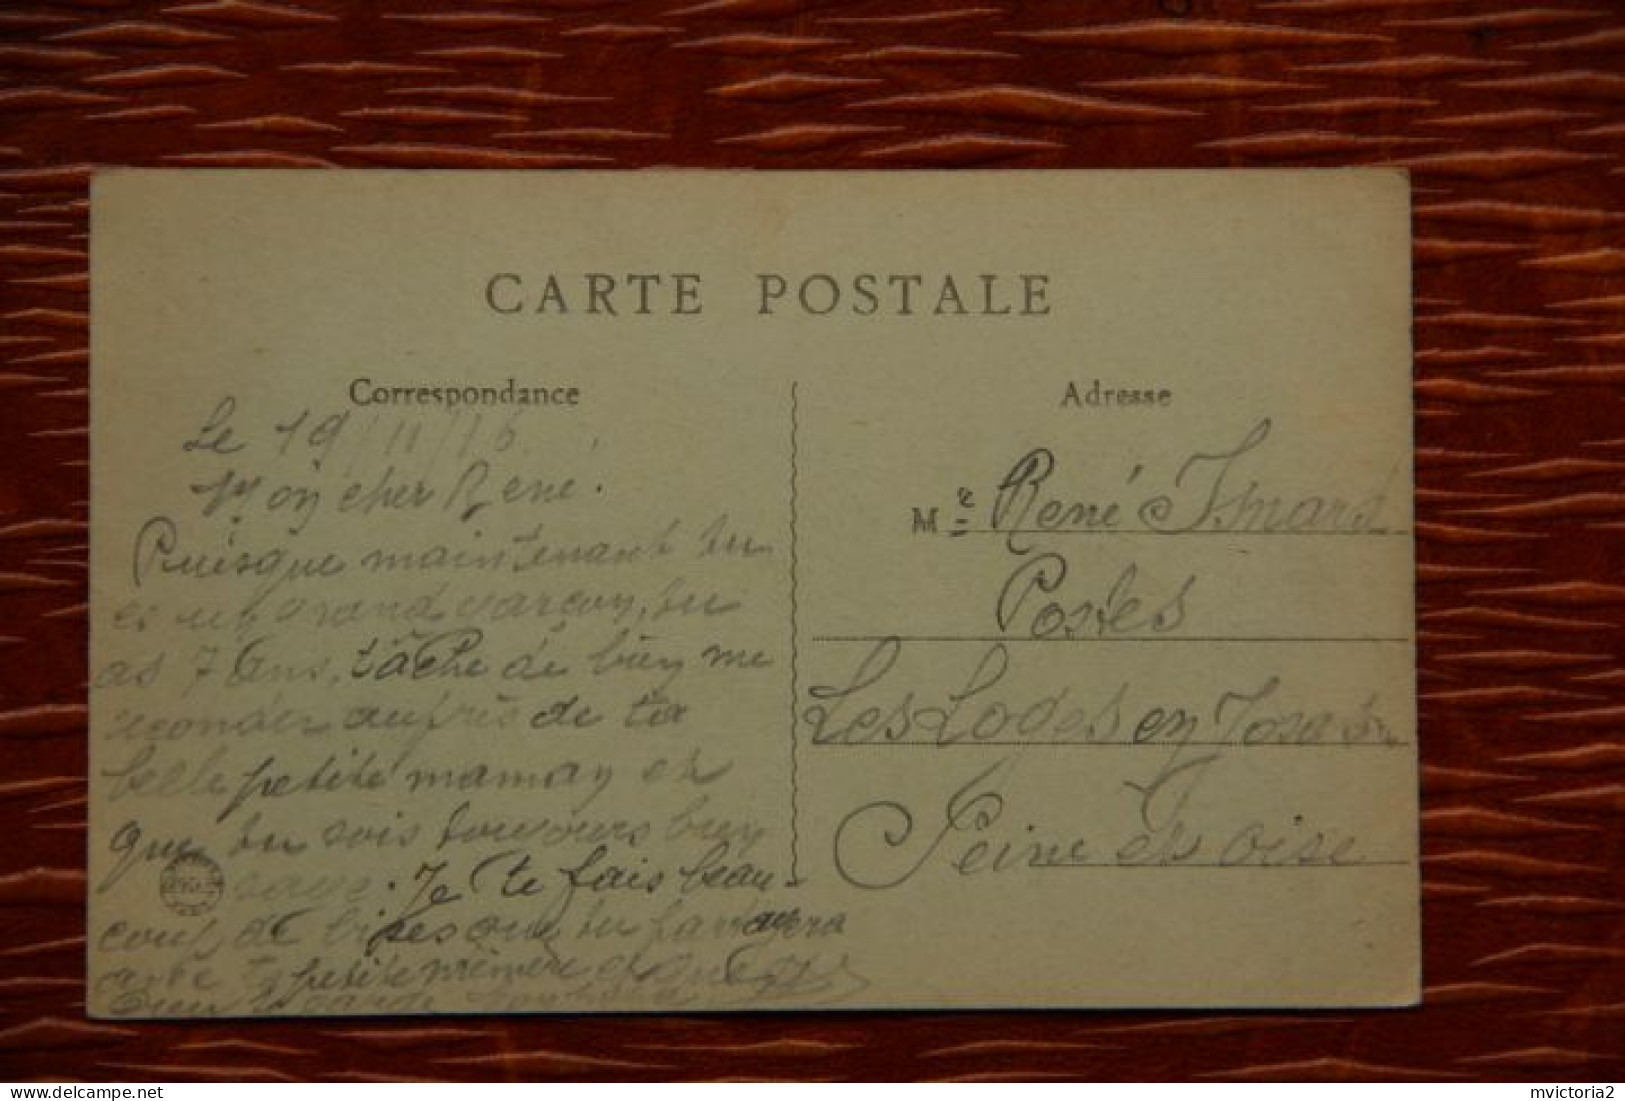 CARTE POSTALE
Correspondance
Le 19/11/16
Mon cher René.
Puisque maintenant tu
es un grand garçon, tu
as 7 ans, tâche de bien me
auprès de ta
belle petite maman et
que tu sois toujours bien
sage. Je te fais beau-
coup de bises que tu partagera
avec ta petite mémère et que
Dieu te garde
Adresse
Mr René Isnard
Postes
Les Loges en Josas
Seine et Oise
mvictoria2